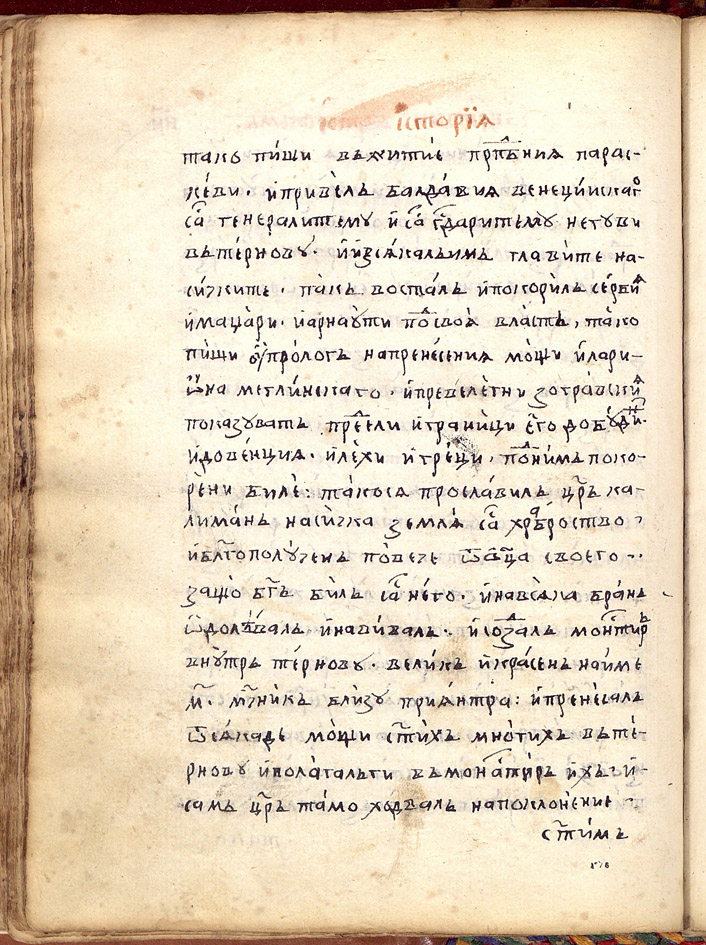 історїѧ
такѡ пи́щи въ житиѐ прп҇бниꙗ парас-
ке́ви. и҆ приве́лъ балда́виꙗ венеци́искаг
са генералите му и҆ са г҇дарите му̀ нег꙼ви
въ те́рновꙋ. и҆ и҆ вси́акаьимъ главите на-
си́чките. па́къ воста́лъ и҆ покори́лъ се́рбиꙗ
и҆ маџа́ри. и҆ арнаꙋти по́ своѧ вла́сть, та́ко
пи́щи ꙋ҆ про́логъ на пренесе́ниꙗ мо́щи и҆лари-
ѡ҆на меглинскаго. и҆ превеле́гни зогра́вскиꙗ
показꙋватъ пре́дели и҆ грани́ци е҆го до бꙋди́н
и҆ до ве́нциꙗ. и҆ ле́хи и҆ гре́ци, по́ нимъ поко-
ре́ни биле: тако сѧ просла́вилъ цр҃ь ка-
лима́нъ на си́чка землѧ̀ са хра́броство
и҆ бл҃гополꙋченъ по́вече ѿ ѡ҆ц҃а своего
защо̀ бг҃ъ би́лъ са не́го. и҆ на всѧка бра́нь
ѡ҆долѣ́валъ и҆ навива́лъ. и҆ созда́лъ монⷭ҇тирь
внꙋтръ те́рновꙋ. вели́къ и҆ красенъ на име
м҃. мч҃никъ близꙋ при ꙗ҆нтра: и҆ пренеса́лъ
ѿ всѧкаде мо́щи ст҃ихъ многихъ въ те́-
рновꙋ и҆ полагалъ ги въ мона́стиръ и҆хъ. и҆
самъ цр҃ь та́мо ходѧлъ на поклоне́ние
ст҃имъ